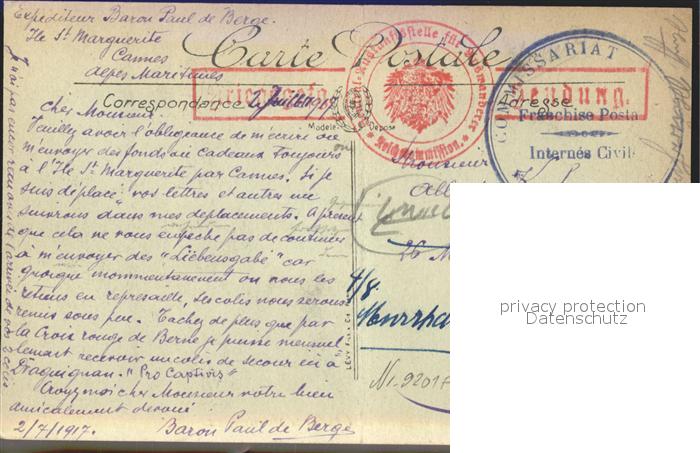 Expéditeur Baron Paul de Berge.
Ile St Marguerite
Cannes
Alpes Maritimes
Carte Postale
Correspondance
2 Juillet 1917
Modèle Déposé
Adresse
Sendung.
Reichskommission.
COMMISSARIAT
Franchise Posta
Internés Civil
Cher Monsieur.
Veuillez avoir l'obligeance de m'écrire ou
m'envoyer des fonds ou cadeaux toujours
à l'Ile St Marguerite par Cannes. Si je
suis déplacé vos lettres et autres me
suivrons dans mes déplacements. A présent
que cela ne vous empêche pas de continuer
à m'envoyer des "Liebensgabe" car
quoique mommentanement on nous les
retiens en represaille, ses colis nous serons
remis sous peu. Tachez de plus, que par
la Croix rouge de Berne je puisse mensuel
lement recevoir un colis de secour
Draguignan. "Pro Captivis"
Croyez moi cher Monsieur votre bien
amicalement devoué
2/7/1917. Baron Paul de Berge
Monsieur
26
4/8.
Murrha
privacy protection
Datenschutz